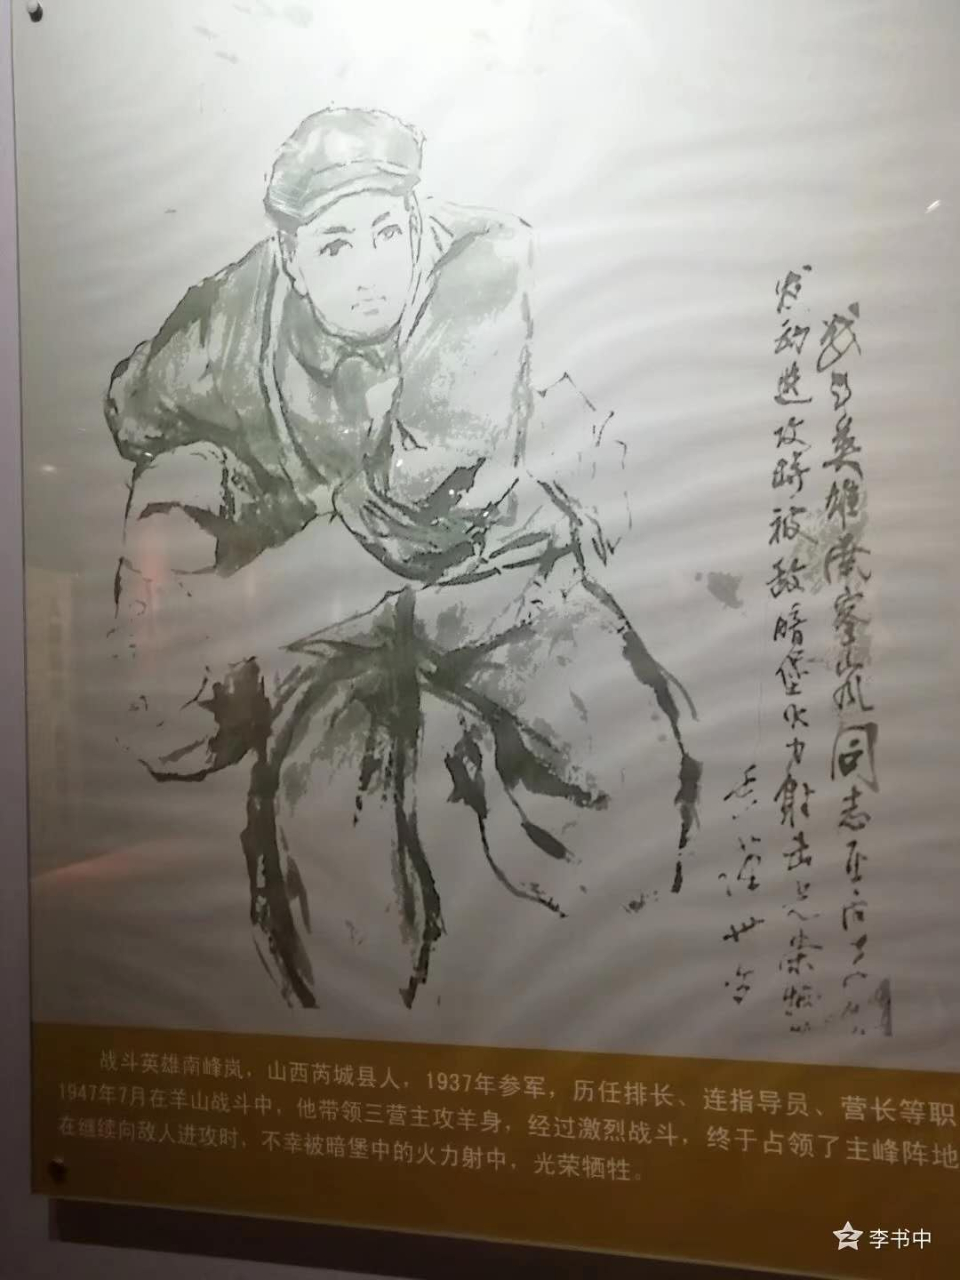 战斗英雄南峰岚同志在
发动进攻时被敌暗堡火力射击光荣牺
战斗英雄南峰岚,山西芮城县人,1937年参军,历任排长、连指导员、营长等职
1947年7月在羊山战斗中,他带领三营主攻羊身,经过激烈战斗,终于占领了主峰阵地
在继续向敌人进攻时,不幸被暗堡中的火力射中,光荣牺牲。
李书中